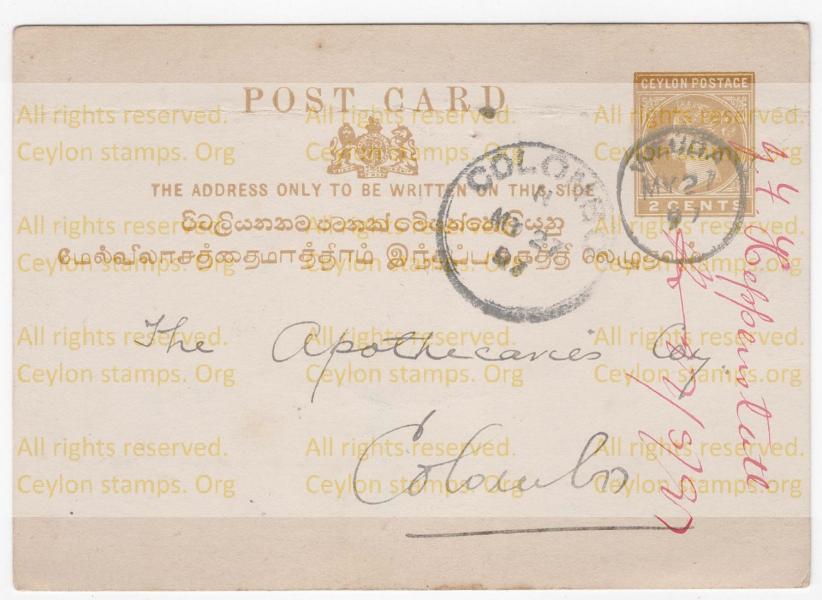 CEYLON POSTAGE
2 CENTS
POST CARD
THE ADDRESS ONLY TO BE WRITTEN ON THIS SIDE
மேல்விலாசத்தைமாத்திரம் இந்தப்பக்கத்தி லெழுதவும்
COLOMBO
MY 27
MY 27
The Apothecaries Coy
Colombo
All rights reserved. All rights reserved. All rights reserved.
Ceylon stamps. Org Ceylon stamps. Org Ceylon stamps. Org
All rights reserved. All rights reserved. All rights reserved.
Ceylon stamps. Org Ceylon stamps. Org Ceylon stamps. Org
All rights reserved. All rights reserved. All rights reserved.
Ceylon stamps. Org Ceylon stamps. Org Ceylon stamps. Org
All rights reserved. All rights reserved. All rights reserved.
Ceylon stamps. Org Ceylon stamps. Org Ceylon stamps. Org
All rights reserved. All rights reserved. All rights reserved.
Ceylon stamps. Org Ceylon stamps. Org Ceylon stamps. Org